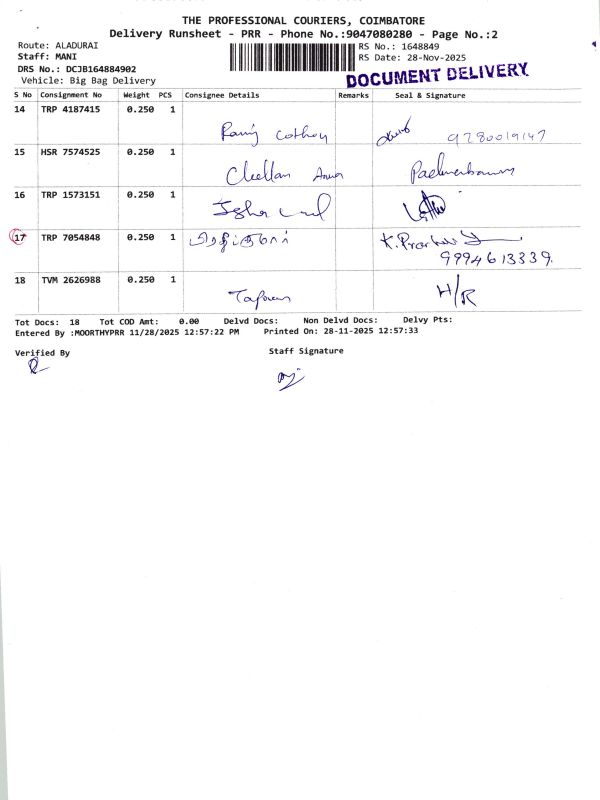 THE PROFESSIONAL COURIERS, COIMBATORE
Delivery Runsheet - PRR - Phone No.:9047080280 - Page No.:2
Route: ALADURAI
RS No.: 1648849
Staff: MANI
RS Date: 28-Nov-2025
DRS No.: DCJB164884902
DOCUMENT DELIVERY
Vehicle: Big Bag Delivery
S No Consignment No Weight PCS Consignee Details Remarks Seal & Signature
14 TRP 4187415 0.250 1
9280019147
15 HSR 7574525 0.250 1
Chellan
16 TRP 1573151 0.250 1
17 TRP 7054848 0.250 1
9994613339.
18 TVM 2626988 0.250 1
H/R
Tot Docs: 18 Tot COD Amt: 0.00 Delvd Docs: Non Delvd Docs: Delvy Pts:
Entered By :MOORTHYPRR 11/28/2025 12:57:22 PM Printed On: 28-11-2025 12:57:33
Verified By Staff Signature